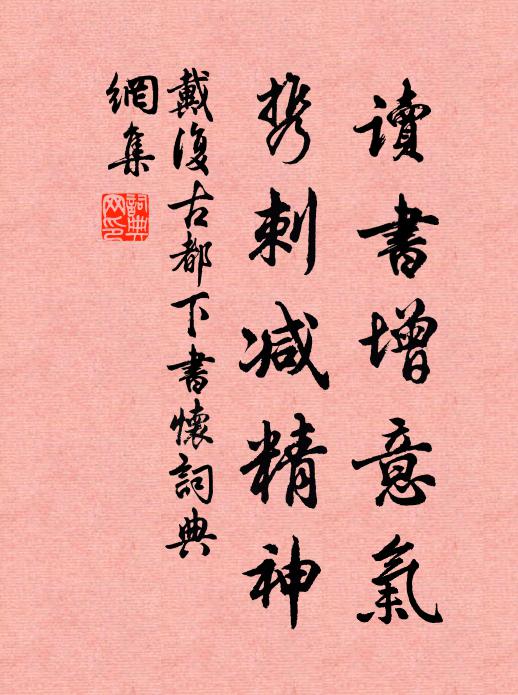 讀書增意氣
携刺减精神
戴復古都下書懷詞典
網集
詞典
网印